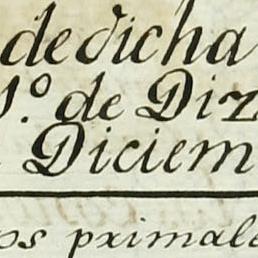 dedicha
1.º de Diz
Diciem
os primale